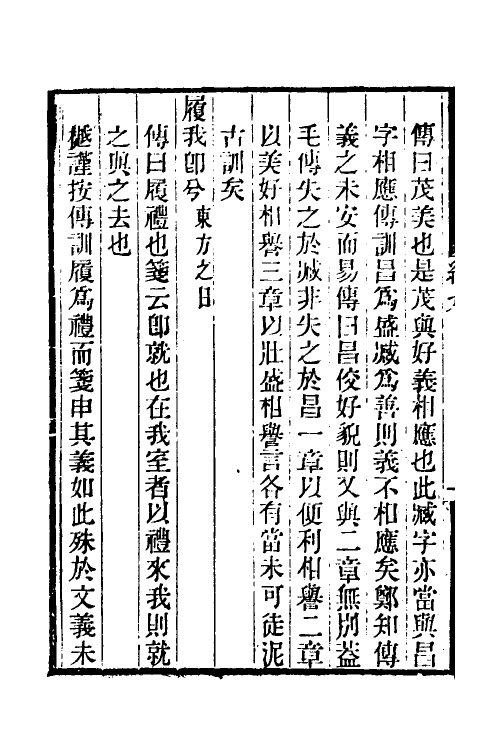 傳曰茂美也是茂與好義相應也此臧字亦當與昌
字相應傳訓昌為盛臧為善則義不相應矣鄭知傳
義之未安而易傳曰昌佼好貌則又與二章無別蓋
毛傳失之於臧非失之於昌一章以便利相譽二章
以美好相譽三章以壯盛相譽言各有當未可徒泥
古訓矣
履我卽兮 東方之日
傳曰履禮也箋云卽就也在我室者以禮來我則就
之與之去也
樾謹按傳訓履為禮而箋申其義如此殊於文義未